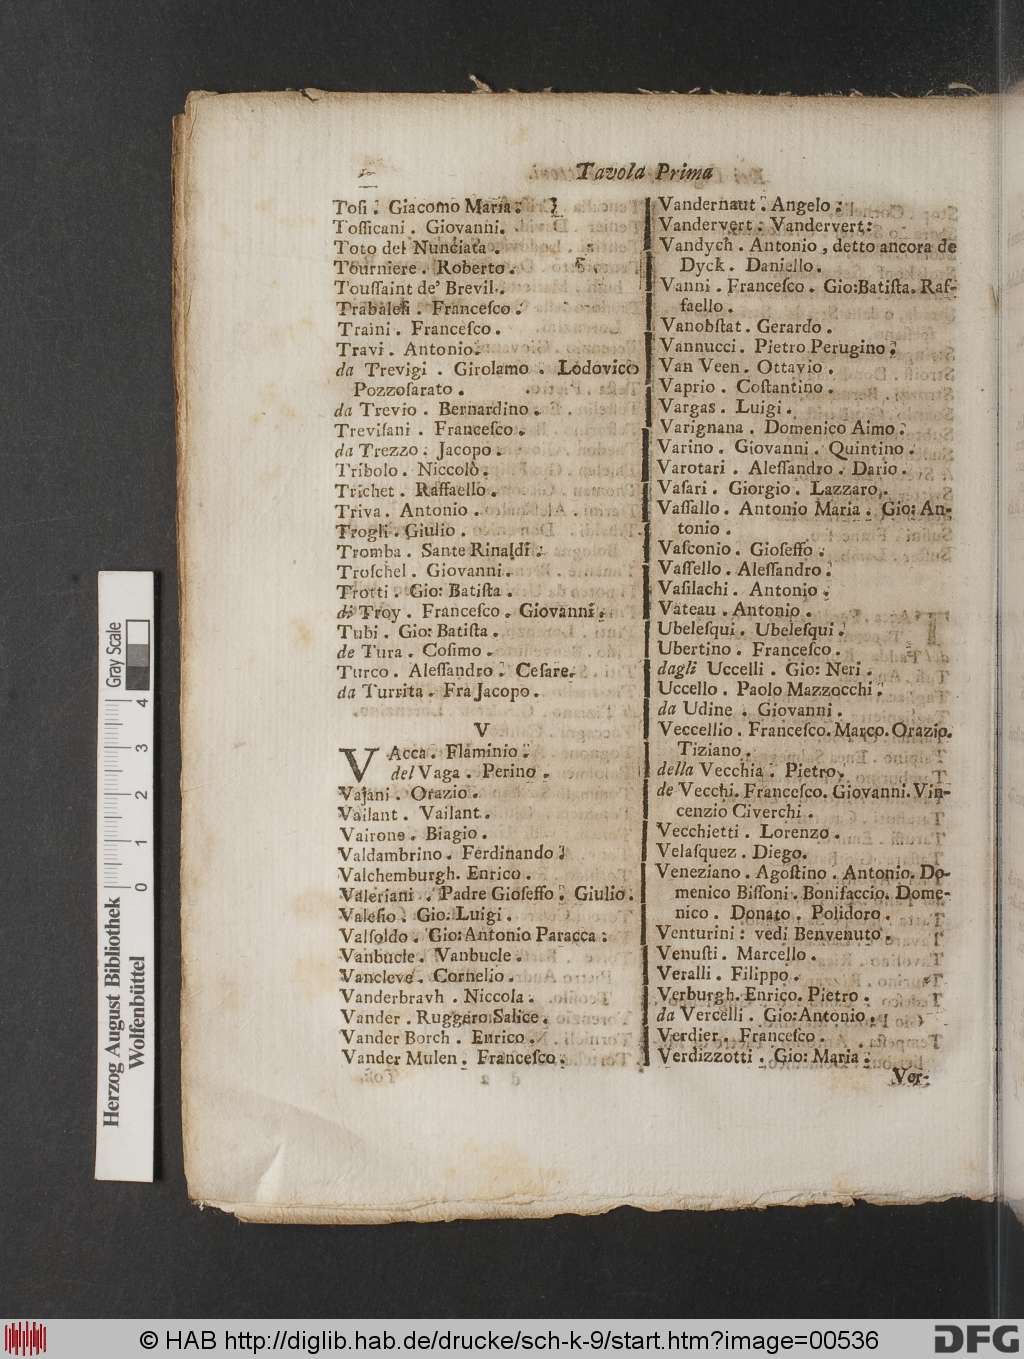 Tavola Prima
Tosi. Giacomo Maria.
Tossicani. Giovanni.
Toto del Nunciata.
Tourniere. Roberto.
Toussaint de' Brevil.
Trabalesi. Francesco.
Traini. Francesco.
Travi. Antonio.
da Trevigi. Girolamo. Lodovico
Pozzosarato.
da Trevio. Bernardino.
Trevisani. Francesco.
da Trezzo. Jacopo.
Tribolo. Niccolò.
Trichet. Raffaello.
Triva. Antonio.
Trogli. Giulio.
Tromba. Sante Rinaldi.
Troschel. Giovanni.
Trotti. Gio: Batista.
di Troy. Francesco. Giovanni.
Tubi. Gio: Batista.
de Tura. Cosimo.
Turco. Alessandro. Cesare.
da Turrita. Fra Jacopo.
V
VAcca. Flaminio.
del Vaga. Perino.
Vajani. Orazio.
Vailant. Vailant.
Vairone. Biagio.
Valdambrino. Ferdinando.
Valchemburgh. Enrico.
Valeriani. Padre Gioseffo. Giulio.
Valesio. Gio: Luigi.
Valsoldo. Gio: Antonio Paracca:
Vanbucle. Vanbucle.
Vancleve. Cornelio.
Vanderbravh. Niccola.
Vander. Ruggero Salice.
Vander Borch. Enrico.
Vander Mulen. Francesco.
Vandernaut. Angelo.
Vandervert. Vandervert.
Vandych. Antonio, detto ancora de
Dyck. Daniello.
Vanni. Francesco. Gio: Batista. Raf-
faello.
Vanobstat. Gerardo.
Vannucci. Pietro Perugino.
Van Veen. Ottavio.
Vaprio. Costantino.
Vargas. Luigi.
Varignana. Domenico Aimo.
Varino. Giovanni. Quintino.
Varotari. Alessandro. Dario.
Vasari. Giorgio. Lazzaro.
Vassallo. Antonio Maria. Gio: An-
tonio.
Vasconio. Gioseffo.
Vassello. Alessandro.
Vasilachi. Antonio.
Vateau. Antonio.
Ubelesqui. Ubelesqui.
Ubertino. Francesco.
dagli Uccelli. Gio: Neri.
Uccello. Paolo Mazzocchi.
da Udine. Giovanni.
Veccellio. Francesco. Marco. Orazio.
Tiziano.
della Vecchia. Pietro.
de Vecchi. Francesco. Giovanni. Vin-
cenzio Civerchi.
Vecchietti. Lorenzo.
Velasquez. Diego.
Veneziano. Agostino. Antonio. Do-
menico Bissoni. Bonifaccio. Dome-
nico. Donato. Polidoro.
Venturini: vedi Benvenuto.
Venusti. Marcello.
Veralli. Filippo.
Verburgh. Enrico. Pietro.
da Vercelli. Gio: Antonio.
Verdier. Francesco.
Verdizzotti. Gio: Maria.
Ver-
Herzog August Bibliothek
Wolfenbüttel
Gray Scale
0 1 2 3 4
© HAB http://diglib.hab.de/drucke/sch-k-9/start.htm?image=00536
DFG